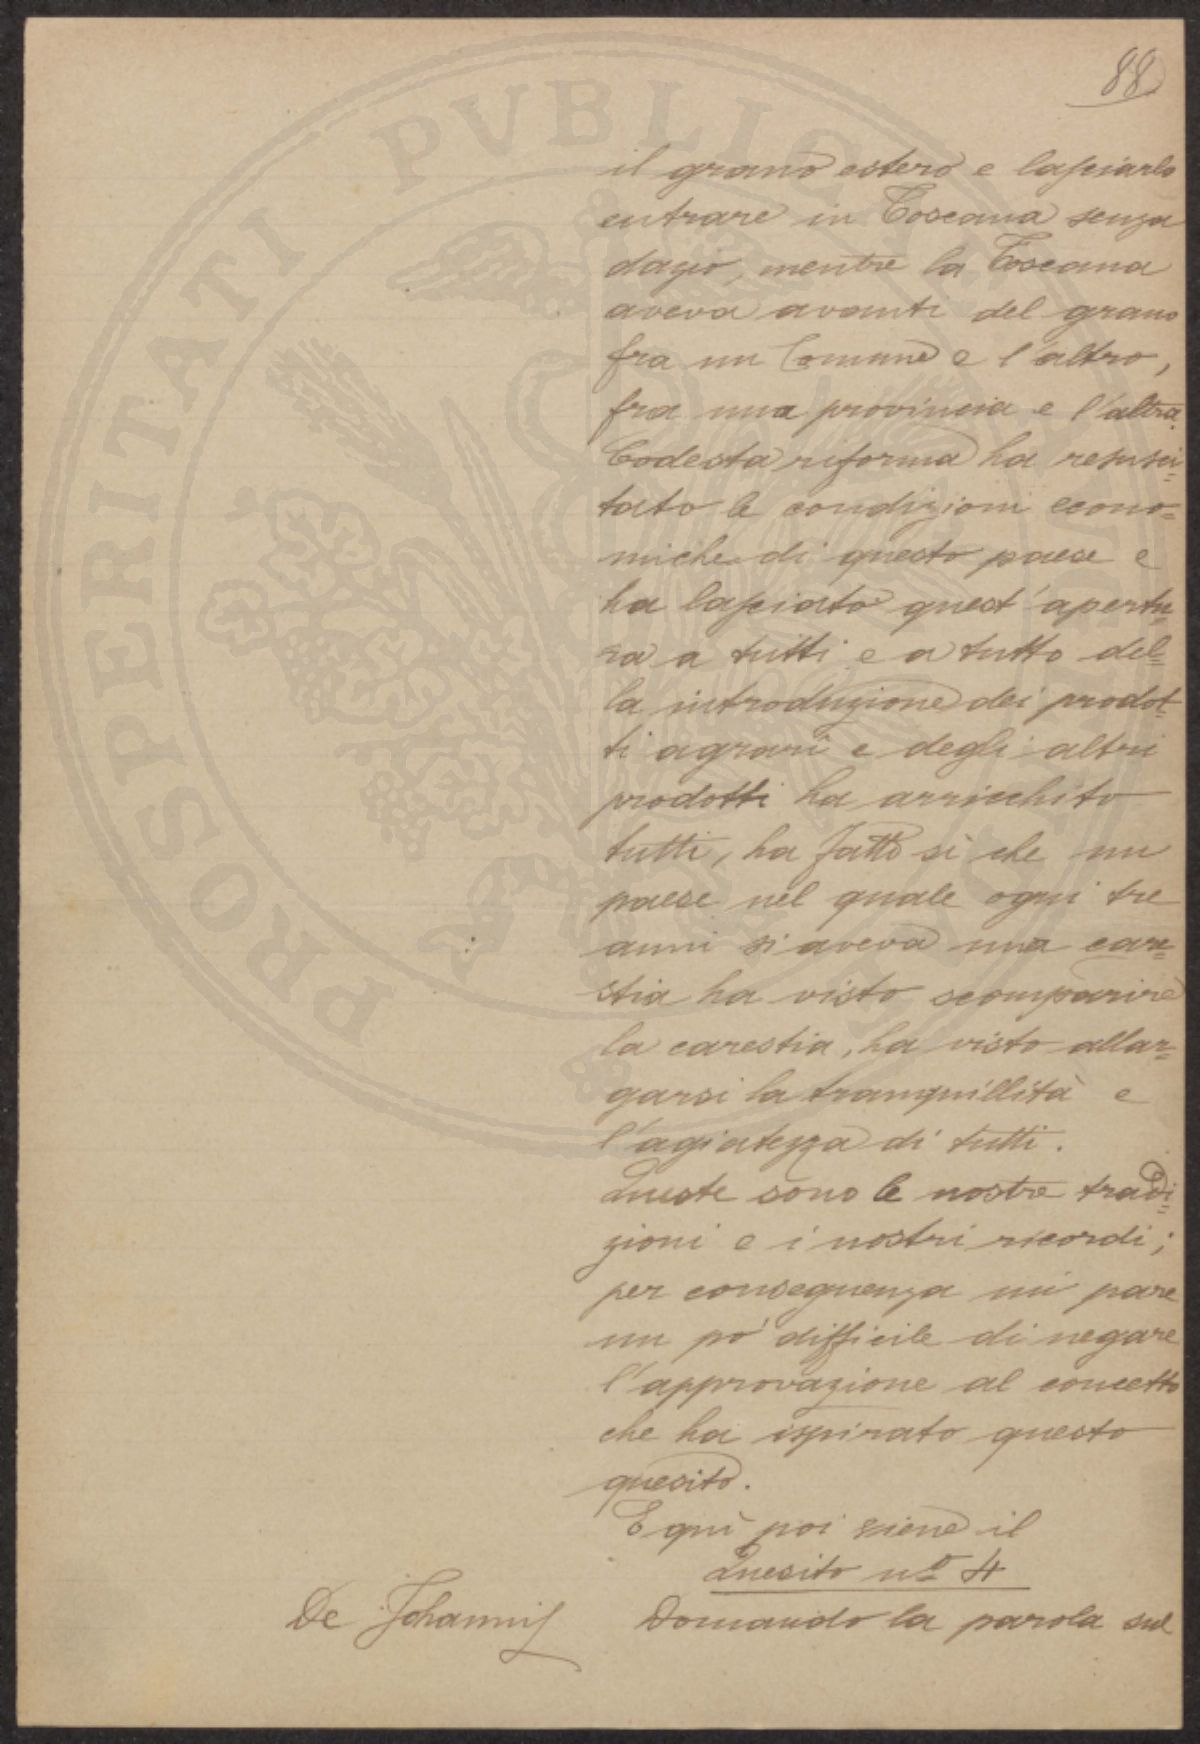 88
il grano estero e lasciarlo
entrare in Toscana senza
dazio, mentre la Toscana
aveva avanti del grano
fra un Comune e l'altro,
fra una provincia e l'altra.
Codesta riforma ha resusci=
tato le condizioni econo=
miche di questo paese e
ha lasciato quest'apertu=
ra a tutti e a tutto del=
la introduzione dei prodot=
ti agrari e degli altri
prodotti ha arricchito
tutti, ha fatto sì che un
paese nel quale ogni tre
anni si aveva una care=
stia ha visto scomparire
la carestia, ha visto allar=
garsi la tranquillità e
l'agiatezza di tutti.
Queste sono le nostre tradi=
zioni e i nostri ricordi;
per conseguenza mi pare
un po' difficile di negare
l'approvazione al concetto
che ha ispirato questo
quesito.
E qui poi viene il
Quesito nº 4
De Johannis Domando la parola sul
PROSPERITATI PVBLICAE